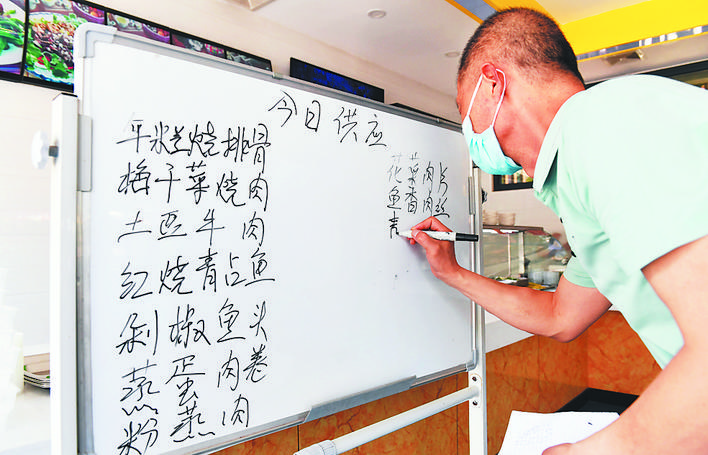 今日供应
烧排骨
梅干菜烧肉
土豆牛肉
红烧青占鱼
剁椒鱼头
蒸蛋肉卷
粉蒸肉
花菜肉片
鱼香肉丝
青